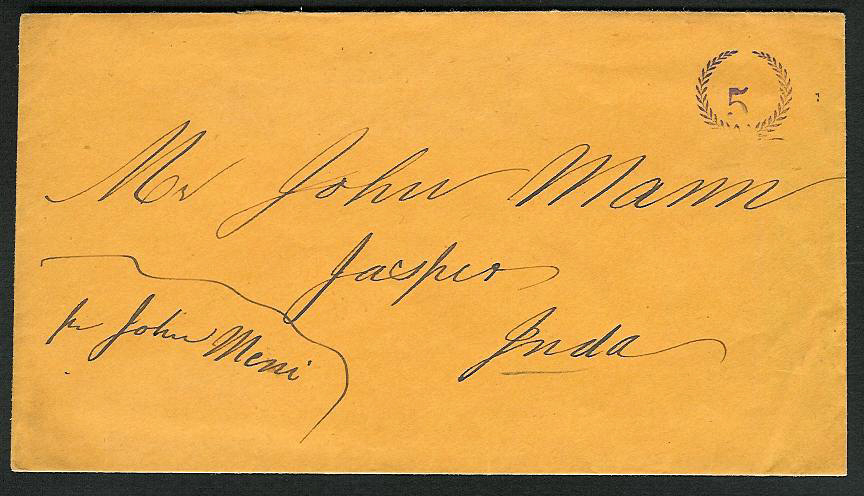 5
Mr John Mann
Jasper
Inda
pr John Meni